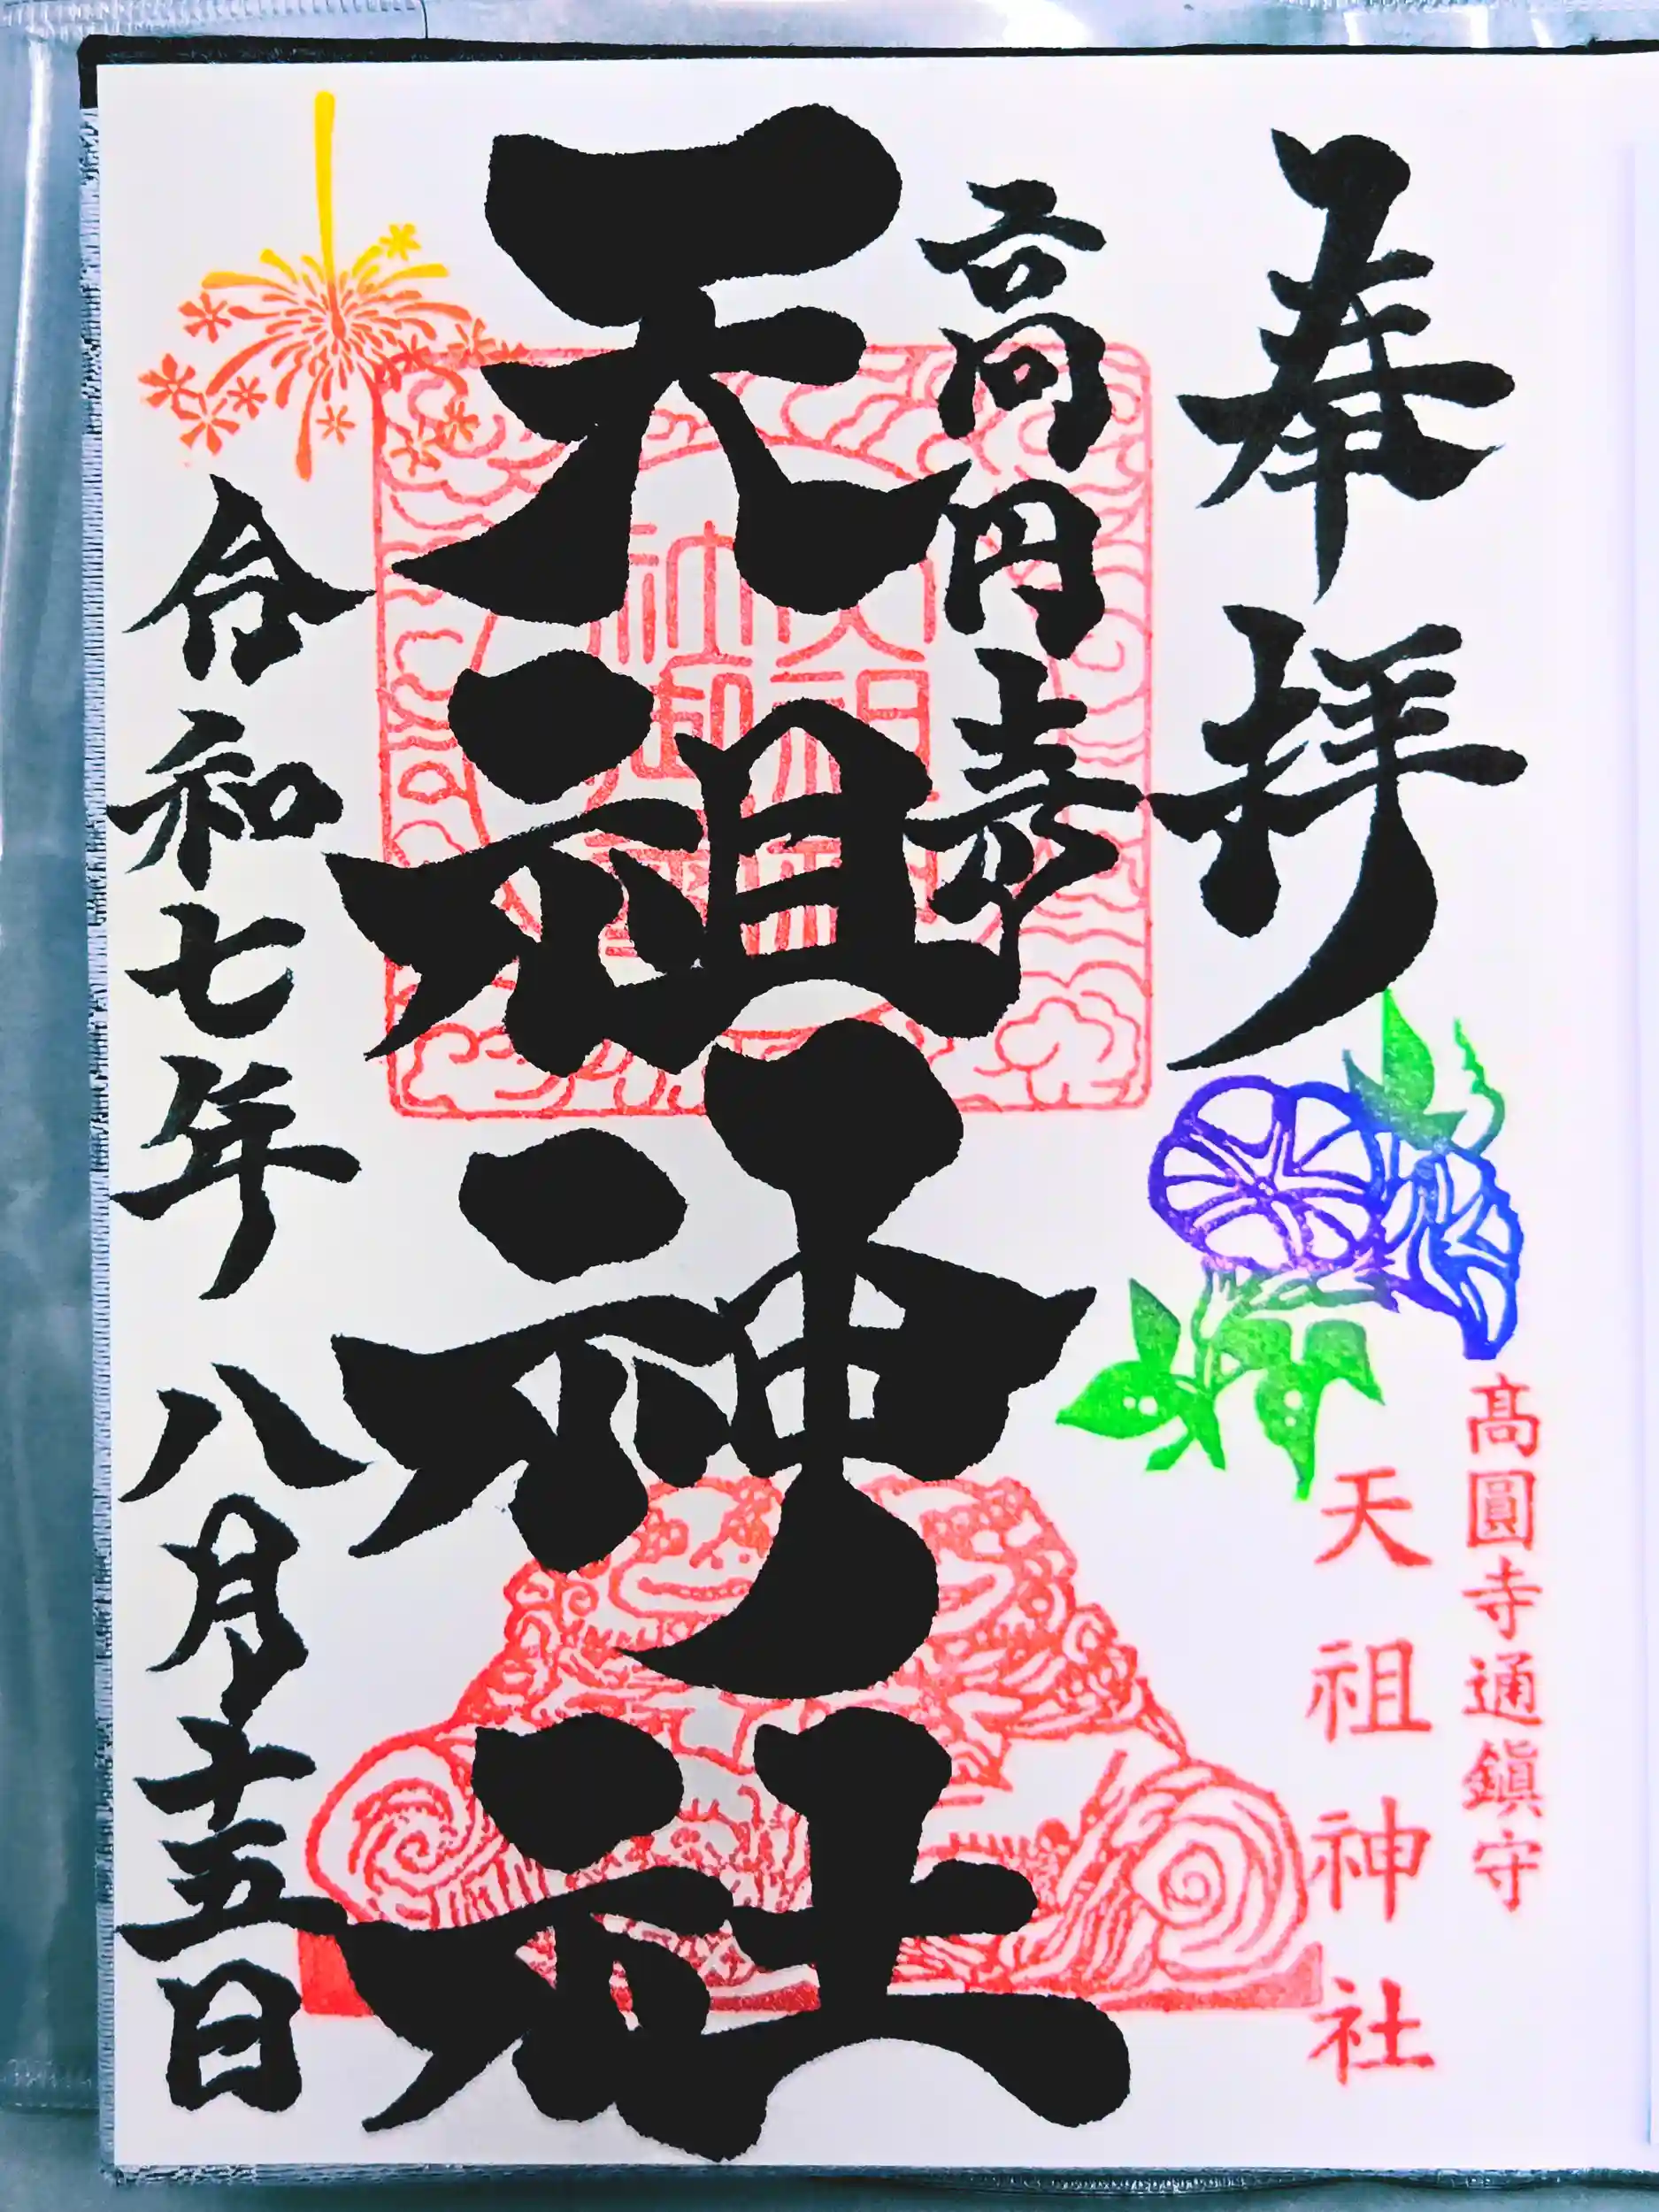 奉拝
髙圓寺通鎮守
天祖神社
高円寺
天祖神社
令和七年八月十五日